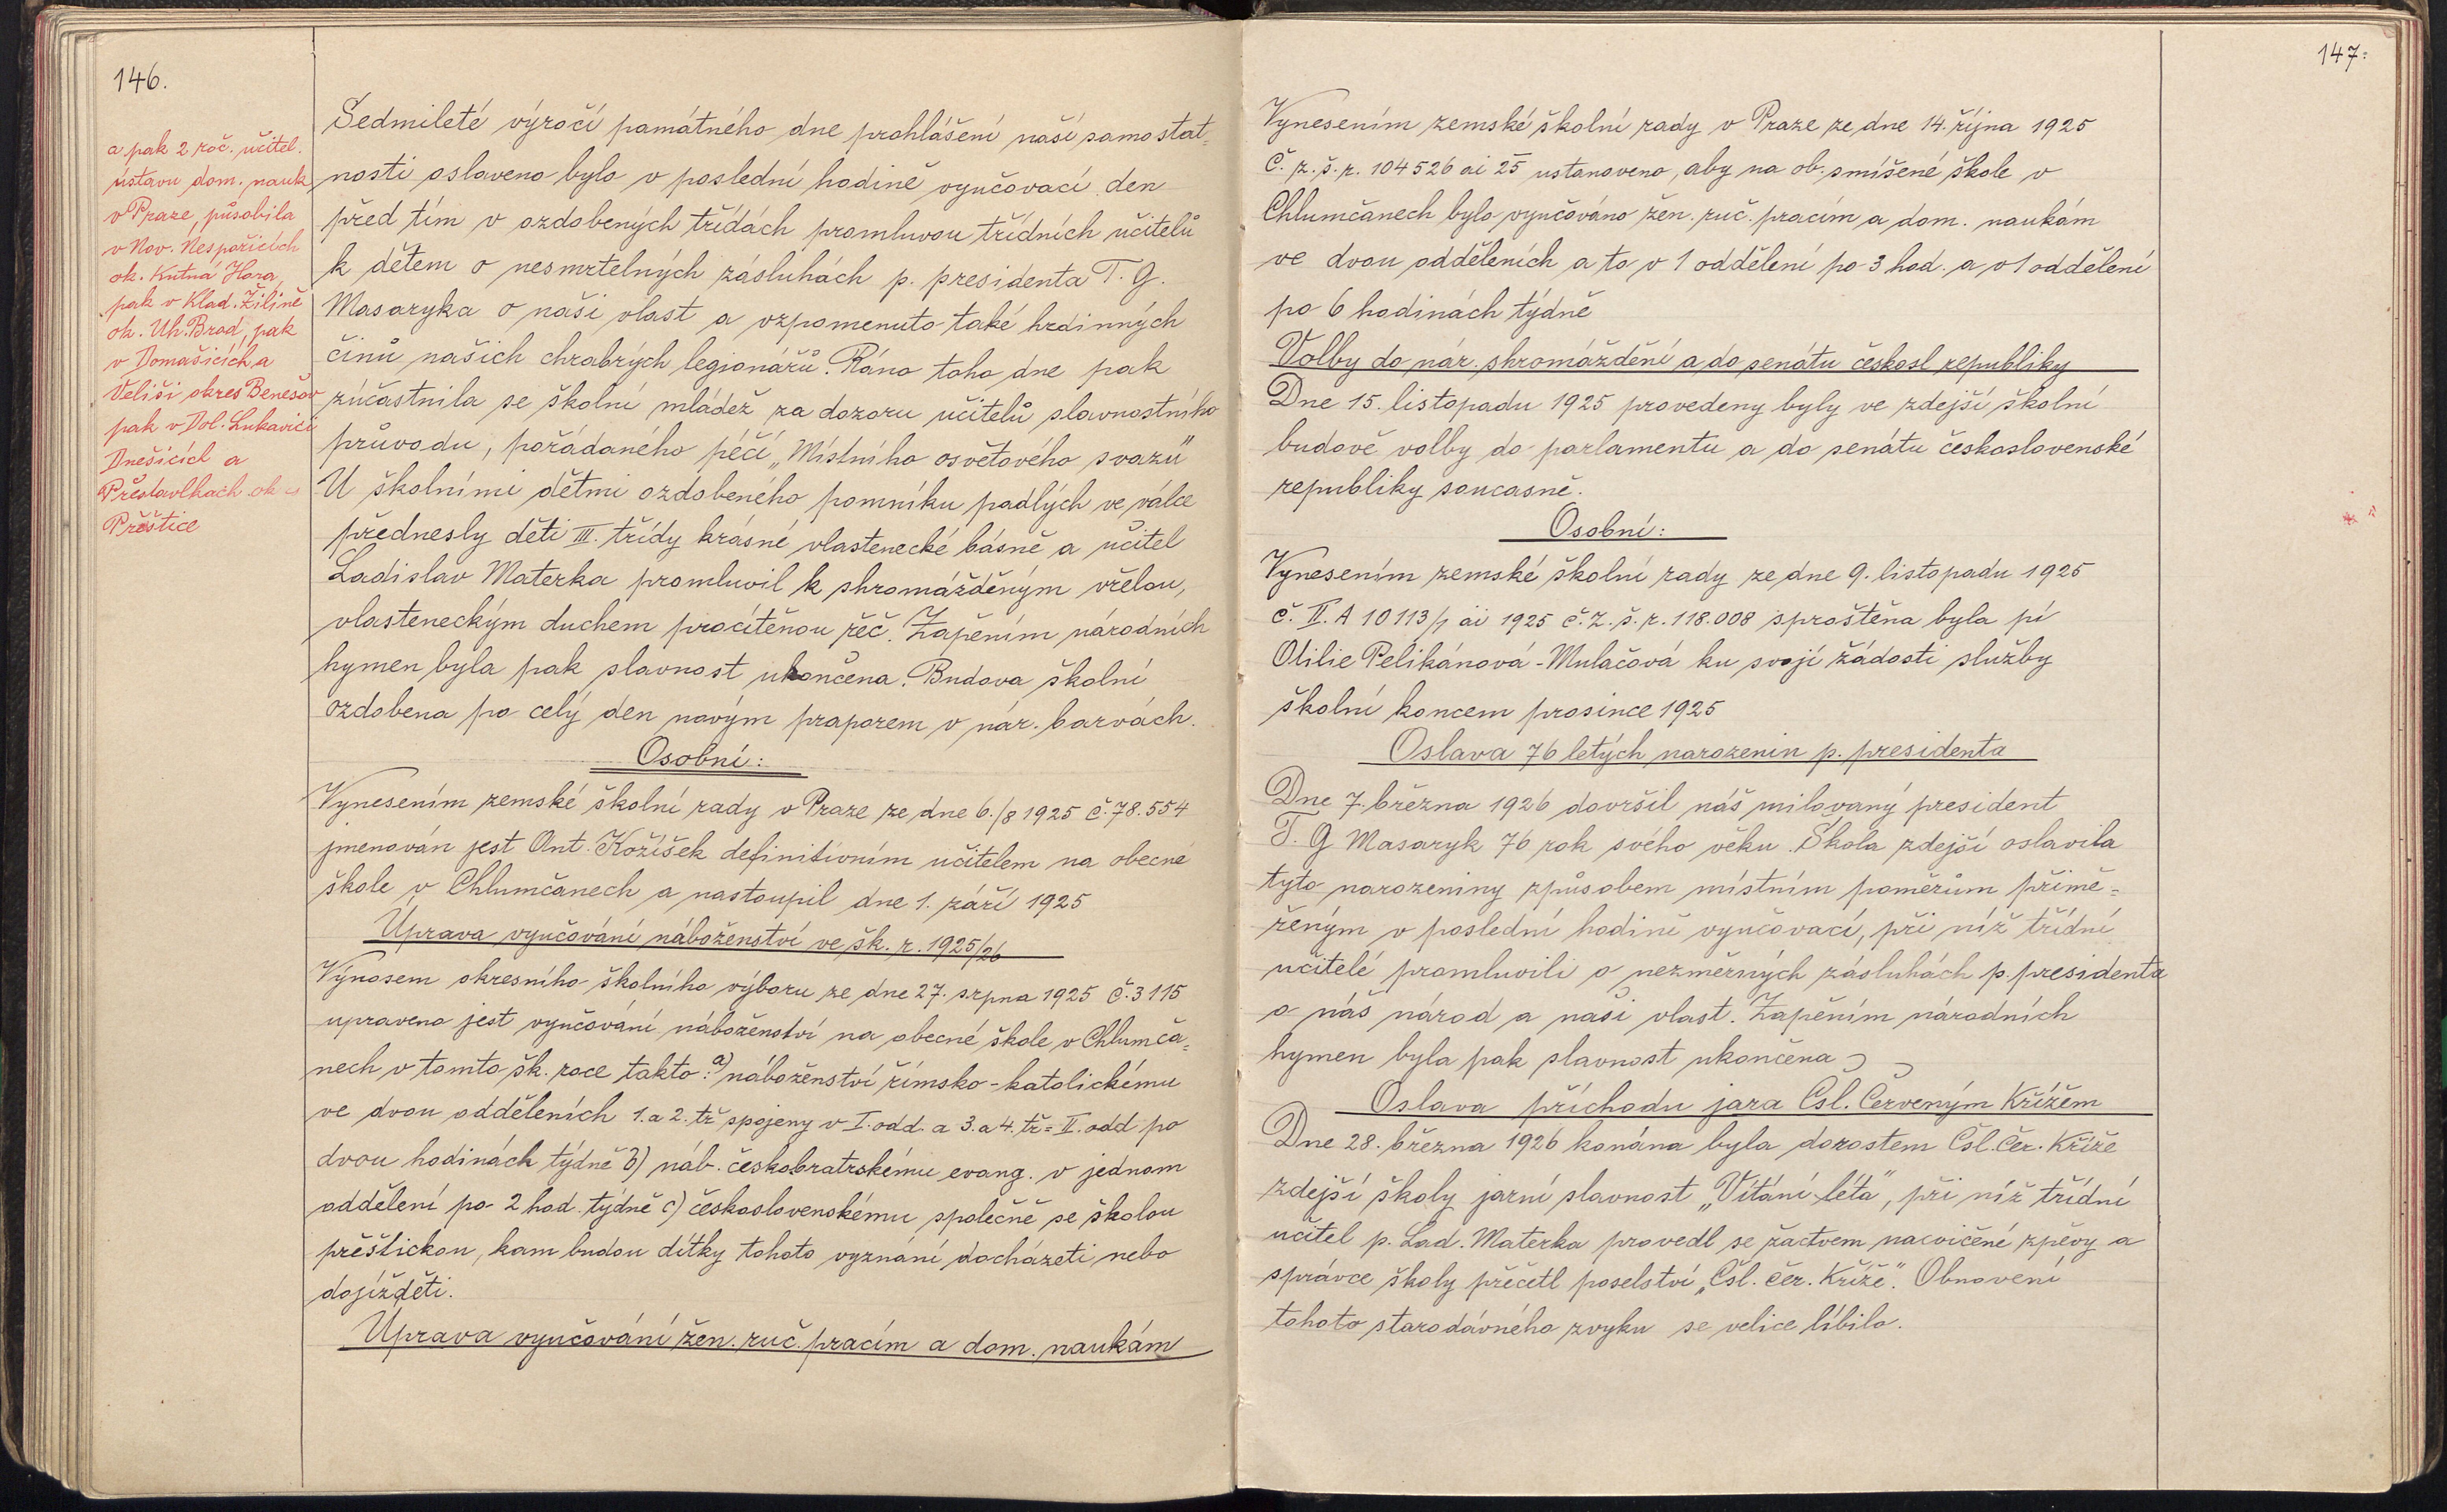 146.
a pak 2 roč. učitel.
ústavu dom. nauk
v Praze, působila
v Nov. Nespeřicích
ok. Kutná Hora,
pak v Klad. Žilině
ok. Uh. Brod, pak
v Domašicích a
Veliši okres Benešov
pak v Dol. Lukavici
Dnešicích a
Přestavlkách ok
Přeštice
Sedmileté výročí památného dne prohlášení naší samostat-
nosti oslaveno bylo v poslední hodině vyučovací den
před tím v ozdobených třídách promluvou třídních učitelů
k dětem o nesmrtelných zásluhách p. presidenta T. G.
Masaryka o naši vlast a vzpomenuto také hrdinných
činů našich chrabrých legionářů. Ráno toho dne pak
zúčastnila se školní mládež za dozoru učitelů slavnostního
průvodu, pořádaného péčí „Místního osvětového svazu"
U školními dětmi ozdobeného pomníku padlých ve válce
přednesly děti III. třídy krásné vlastenecké básně a učitel
Ladislav Materka promluvil k shromážděným vřelou,
vlasteneckým duchem procítěnou řeč. Zapěním národních
hymen byla pak slavnost ukončena. Budova školní
ozdobena po celý den novým praporem v nár. barvách.
Osobní:
Vynesením zemské školní rady v Praze ze dne 6./8 1925 č. 78.554
jmenován jest Ant. Kožíšek definitivním učitelem na obecné
škole v Chlumčanech a nastoupil dne 1. září 1925
Úprava vyučování náboženství ve šk. r. 1925/26
Výnosem okresního školního výboru ze dne 27. srpna 1925 č. 3115
upraveno jest vyučování náboženství na obecné škole v Chlumča-
nech v tomto šk. roce takto: a) náboženství římsko-katolickému
ve dvou odděleních 1. a 2. tř spojeny v I. odd. a 3. a 4. tř = II. odd po
dvou hodinách týdně b) náb. českobratrskému evang. v jednom
oddělení po 2 hod. týdně c) československému společně se školou
přeštickou, kam budou dítky tohoto vyznání docházeti nebo
dojížděti.
Úprava vyučování žen. ruč. pracím a dom. naukám
147.
Vynesením zemské školní rady v Praze ze dne 14. října 1925
Č. z. š. r. 104526 ai 25 ustanoveno, aby na ob. smíšené škole v
Chlumčanech bylo vyučováno žen. ruč. pracím a dom. naukám
ve dvou odděleních a to v 1 oddělení po 3 hod. a v 1 oddělení
po 6 hodinách týdně
Volby do nár. shromáždění a do senátu českosl republiky
Dne 15. listopadu 1925 provedeny byly ve zdejší školní
budově volby do parlamentu a do senátu československé
republiky současně.
Osobní:
Vynesením zemské školní rady ze dne 9. listopadu 1925
č. II. A 10113/1 ai 1925 č. z. š. r. 118.008 sproštěna byla pí
Otilie Pelikánová-Mulačová ku svojí žádosti služby
školní koncem prosince 1925
Oslava 76 letých narozenin p. presidenta
Dne 7. března 1926 dovršil náš milovaný president
T. G Masaryk 76 rok svého věku. Škola zdejší oslavila
tyto narozeniny způsobem místním poměrům přimě-
řeným v poslední hodině vyučovací, při níž třídní
učitelé promluvili o nezměrných zásluhách p. presidenta
o náš národ a naši vlast. Zapěním národních
hymen byla pak slavnost ukončena
Oslava příchodu jara Čsl. Červeným Křížem
Dne 28. března 1926 konána byla dorostem Čsl. Čer. Kříže
zdejší školy jarní slavnost „Vítání léta", při níž třídní
učitel p. Lad. Materka provedl se žactvem nacvičené zpěvy a
správce školy přečetl poselství „Čsl. Čer. Kříže". Obnovení
tohoto starodávného zvyku se velice líbilo.